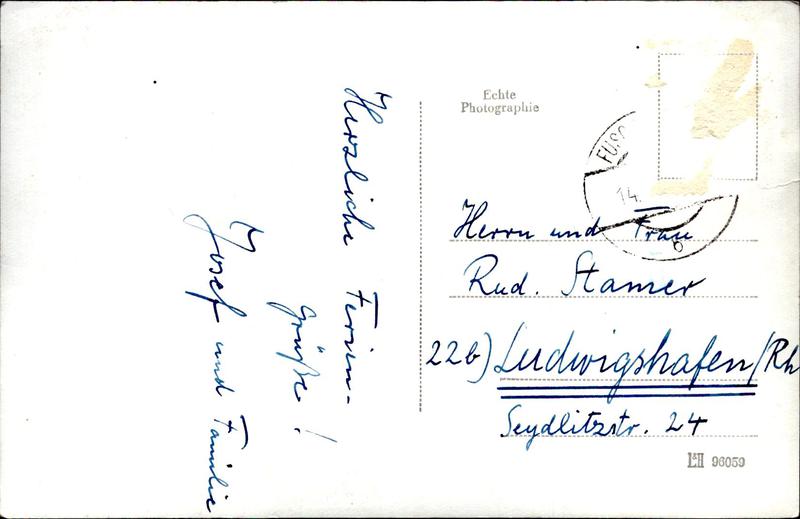 Herzliche Ferien-
grüße!
Josef und Familie
Echte
Photographie
14.
b
Herrn und Frau
Rud. Stamer
22b) Ludwigshafen/Rh
Seydlitzstr. 24
96059